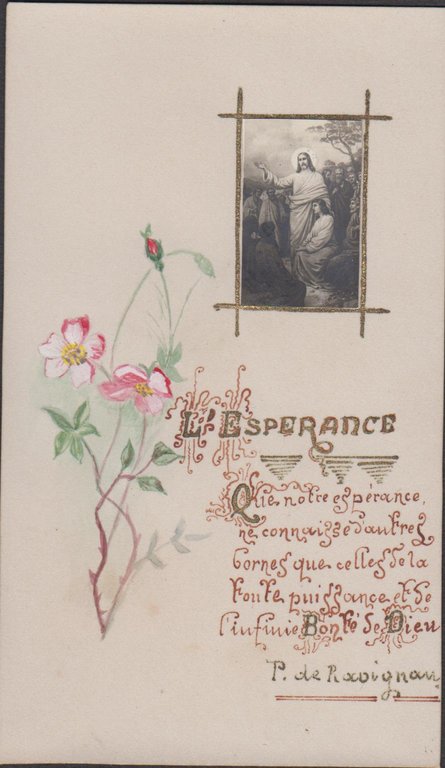 L'ESPERANCE
Que notre espérance,
ne connaisse d'autres
bornes que celles de la
toute puissance et de
l'infinie Bonté de Dieu
P. de Ravignan